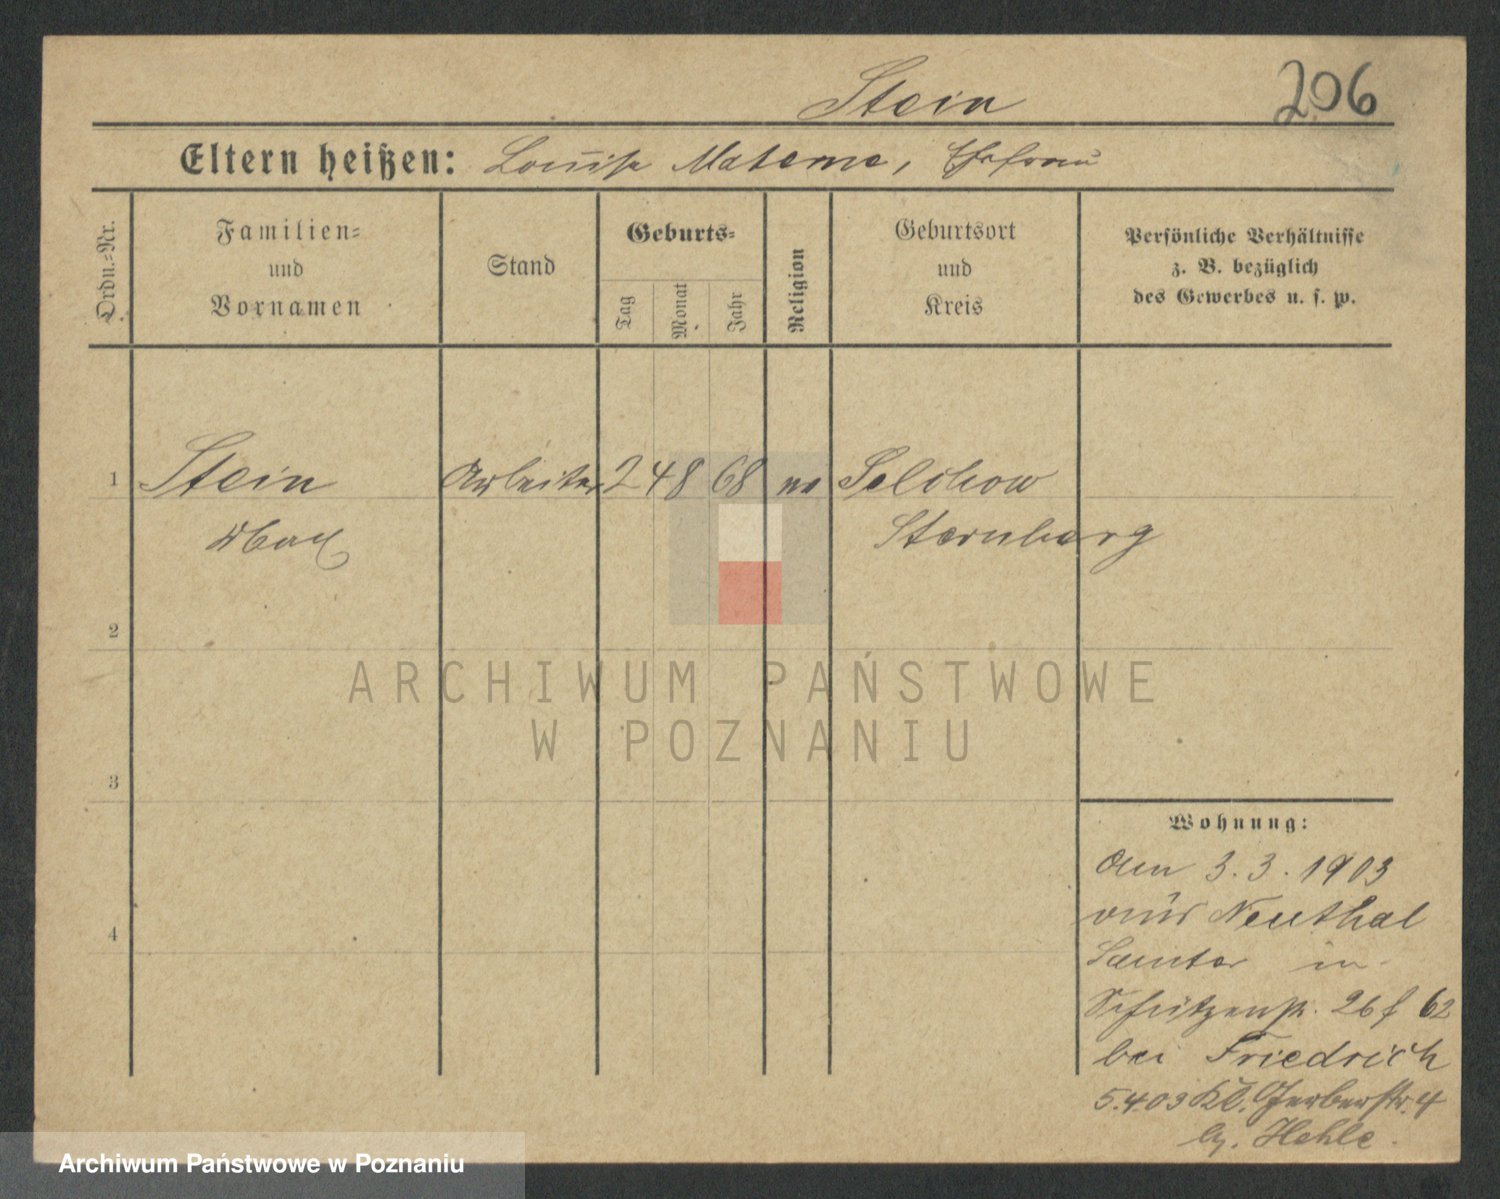 Stein
206
Eltern heißen: Louise Materne, Ehefrau
Ordn.-Nr.
Familien-
und
Vornamen
Stand
Geburts-
Tag
Monat
Jahr
Religion
Geburtsort
und
Kreis
Persönliche Verhältnisse
z. B. bezüglich
des Gewerbes u. s. w.
1 Stein Arbeiter 24 8 68 Selchow
Sternberg
2
3
4
ARCHIWUM PAŃSTWOWE
W POZNANIU
Wohnung:
3.3.1903
aus Neuthal
Samter in
Schützenstr. 26 62
bei Friedrich
5.4.03 Kl. Gerberstr. 4
Hehle
Archiwum Państwowe w Poznaniu